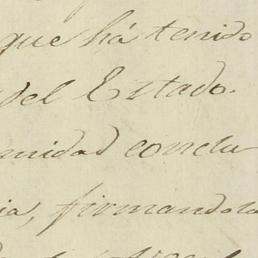 que há tenido
del Estado.
nidad conclu
ia, firmandola